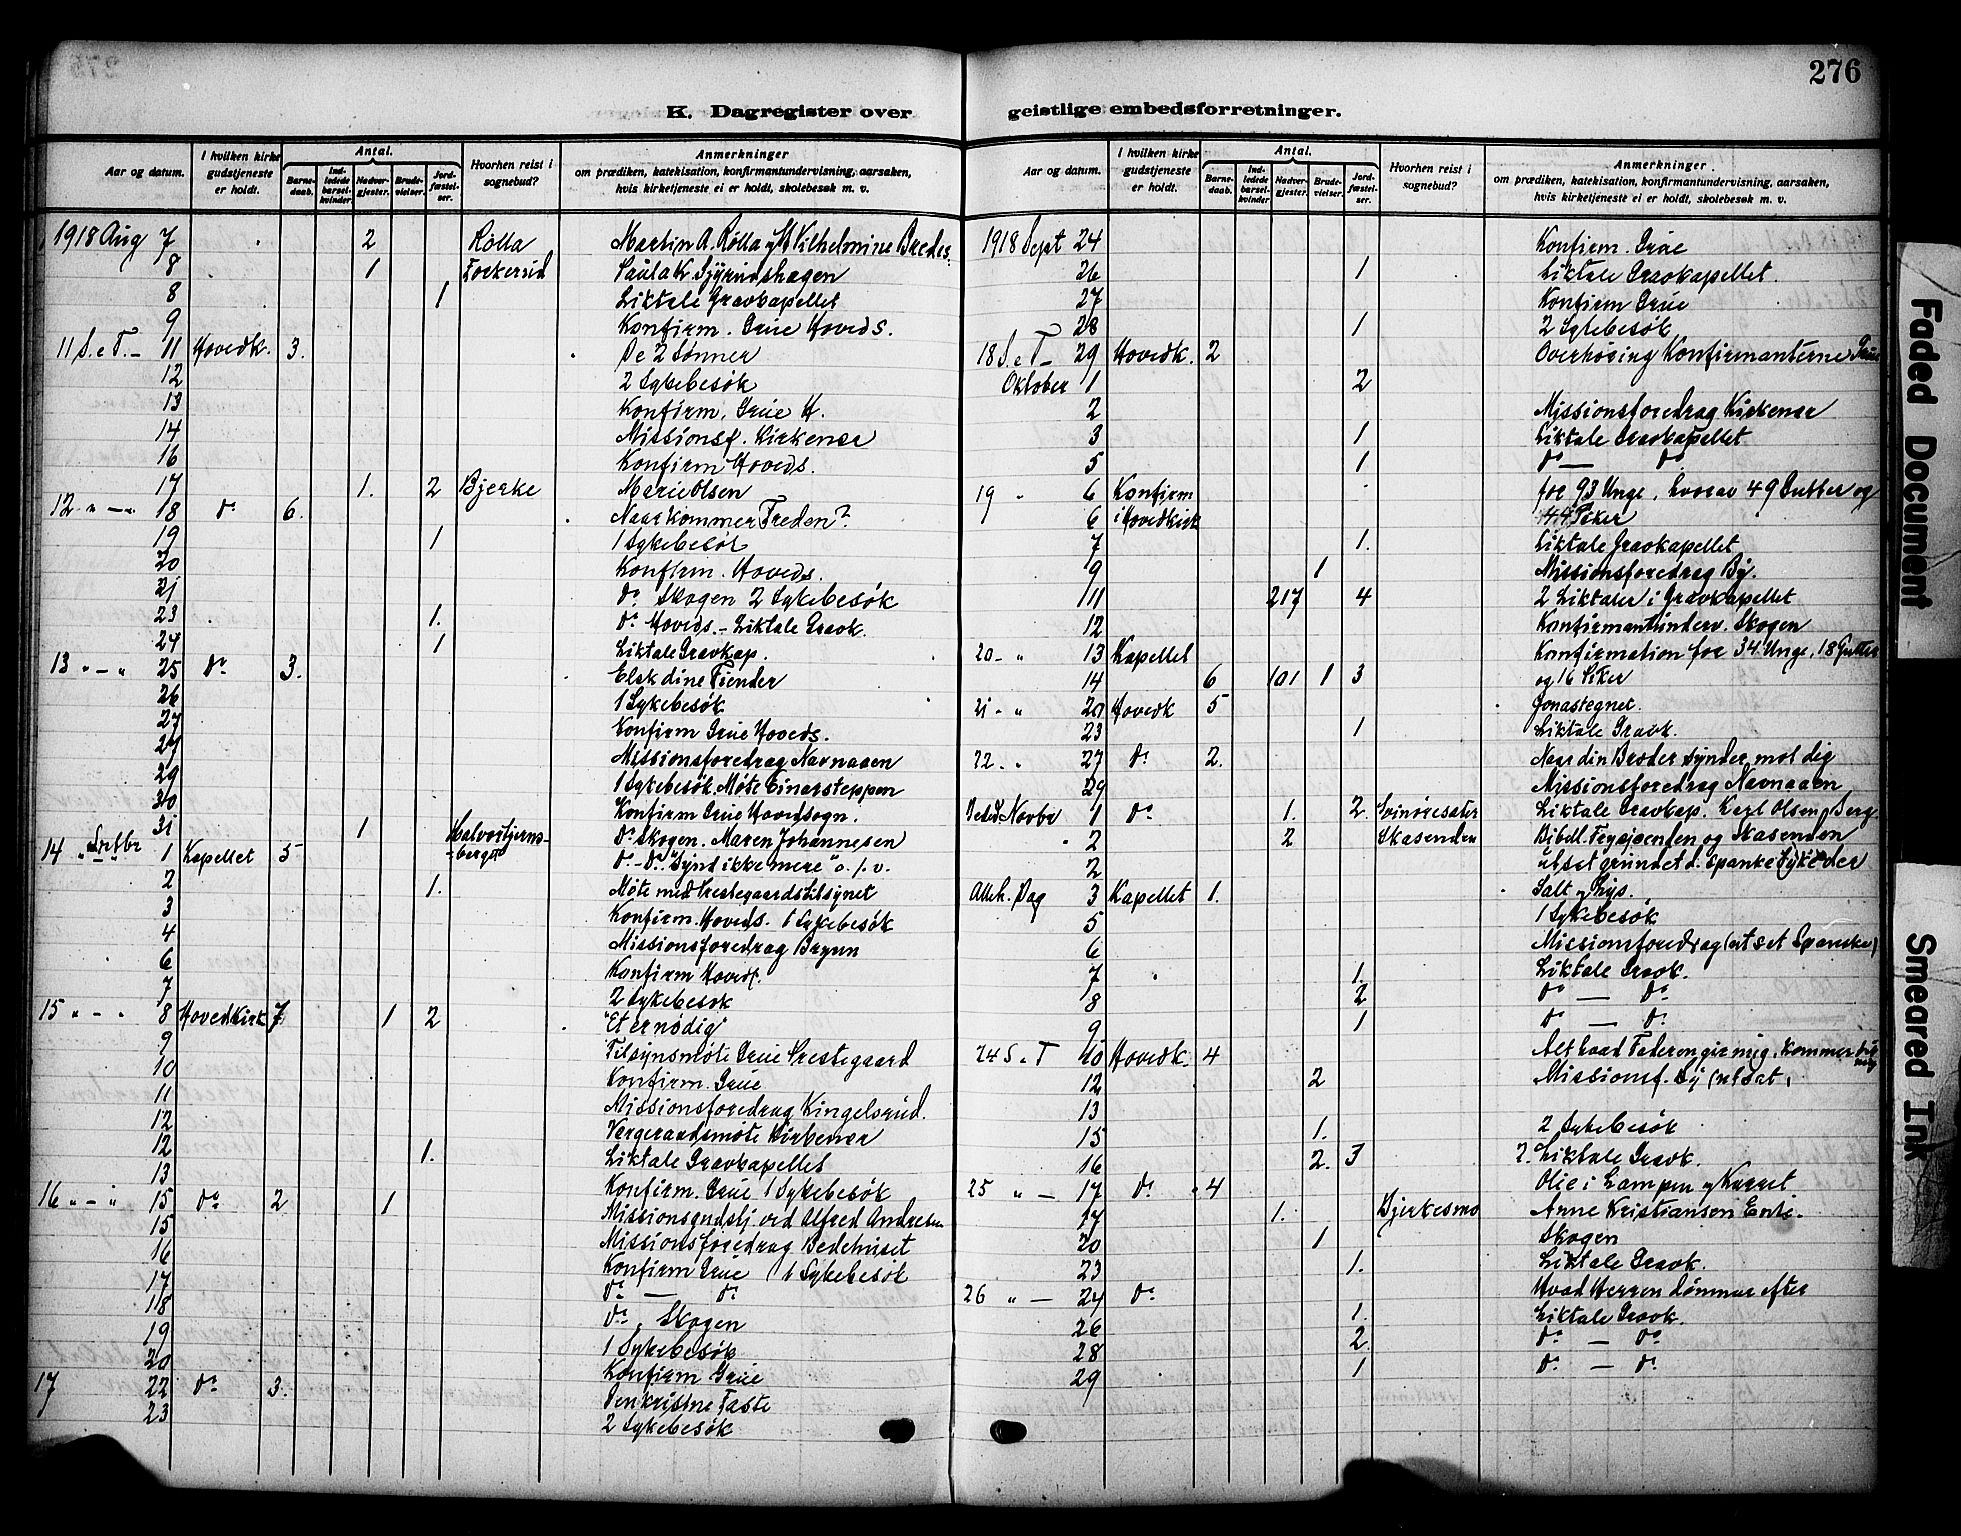 276
K. Dagregister over geistlige embedsforretninger.
Aar og datum.
I hvilken kirke gudstjeneste er holdt.
Antal.
Barne-daab.
Ind-ledede barsel-kvinder.
Nadver-gjester.
Brude-vielser.
Jord-fæstel-ser.
Hvorhen reist i sognebud?
Anmerkninger
om prædiken, katekisation, konfirmantundervisning, aarsaken, hvis kirketjeneste ei er holdt, skolebesøk m. v.
1918 Aug 7 2 Rolla Martin A. Rolla og M Vilhelmine Bredes.
8 1
8 1 Liktale Gravkapellet
9 Konfirm. Grue Hoveds.
11 S. e T. - 11 Hovedk. 3. De 2 Sønner
12 2 Sykebesøk
13 Konfirm. Grue H.
14 Missionsf. Kirkenær
16 Konfirm Hoveds.
17 1. 2 Bjerke Marie Olsen
12 " — " 18 do 6. Naar kommer Freden?
19 1 1 Sykebesøk
20 Konfirm. Hoveds.
21 do Skogen 2 Sykebesøk
23 1. do Hoveds. - Liktale Gravk.
24 1 Liktale Gravkap.
13 " — " 25 do 3. Elsk dine Fiender
26 1 Sykebesøk
27 Konfirm Grue Hoveds.
27 Missionsforedrag Navnaaen
29 1 Sykebesøk. Møte Einarsteppen
30 Konfirm Grue Hovedsogn.
31 1 do Skogen. Maren Johannesen
14 " — " Septbr 1 Kapellet 5 do - do "Synd ikke mere" o. s. v.
2 1. Møte med Prestegaardstilsynet
3 Konfirm. Hoveds. 1 Sykebesøk
4 Missionsforedrag Brynn
6 Konfirm Hoveds.
7 2 Sykebesøk
15 " - " 8 Hovedkirk 7 1 2 "Et er nødig"
9 Tilsynsmøte Grue Prestegaard
10 Konfirm. Grue
11 Missionsforedrag Kingelsrud.
12 Vergeraadsmøte Kirkenær
12 1. Liktale Gravkapellet
13 Konfirm. Grue 1 Sykebesøk
16 " - " 15 do 2 1 Missionsgudstj. ved Alfred Andresen
15 Missionsforedrag Bedehuset
16 Konfirm Grue 1 Sykebesøk
17 do — do
18 do, Skogen
19 1 Sykebesøk
20 Konfirm Grue
17 22 do 3. Den kristne Faste
23 2 Sykebesøk
Aar og datum.
I hvilken kirke gudstjeneste er holdt.
Antal.
Barne-daab.
Ind-ledede barsel-kvinder
Nadver-gjester.
Brude-vielser.
Jord-fæstel-ser.
Hvorhen reist i sognebud?
Anmerkninger.
om prædiken, katekisation, konfirmantundervisning, aarsaken, hvis kirketjeneste ei er holdt, skolebesøk m. v.
1918 Sept 24 Konfirm. Grue
26 1 Liktale Gravkapellet.
27 Konfirm Grue
28 1 2 Sykebesøk
18 S. e T - 29 Hovedk. 2 Overhøring Konfirmanterne Grue
Oktober 1 2
2 Missionsforedrag Kirkenær
3 1 Liktale Gravkapellet
5 1 do — do
19 " 6 Konfirm for 93 Unge, hvorav 49 Gutter og
6 i Hovedkirk 44 Piker
7 1. Liktale Gravkapellet
9 1 Missionsforedrag By.
11 217 4 2 Liktaler i Gravkapellet
12 Konfirmantunderv. Skogen
20 - " 13 Kapellet Konfirmation for 34 Unge, 18 Gutter
14 6 101 1 3 og 16 Piker
21 - " 20 Hovedk 5 Jonastegnet.
23 1 Liktale Gravk.
22 - " 27 do 2. Naar din Broder synder mot dig
29 Missionsforedrag Navnaaen
Beded Novbr 1 do 1. 2 Liktale Gravkap. Karl Olsen Berg.
2 2 Skasenden og Skasenden
2 utsat grundet d. spanske Syke
Alleh. Dag 3 Kapellet 1. Salt og Lys.
5 1 Sykebesøk
6 Missionsforedrag (utsat Spanske)
7 1. Liktale Gravk.
8 2 do — do
9 1 do — do
24 S. e T 10 Hovedk. 4 Alt hvad Faderen gir mig, kommer til mig
12 2 Missionsf. By (utsat)
13
15 1. 2 Sykebesøk
16 2. 3 2. Liktale Gravk.
25 " — 17 do 4 Olie i Lampen og Karret
17 1. Bjerkesmo Anne Kristiansen Enke.
20 1 Skogen
23 1. Liktale Gravk.
26 " — 24 do Hvad Herren dømmer efter
26 1. Liktale Gravk.
28 2 do — do
29 1 do — do
Faded Document
Smeared Ink